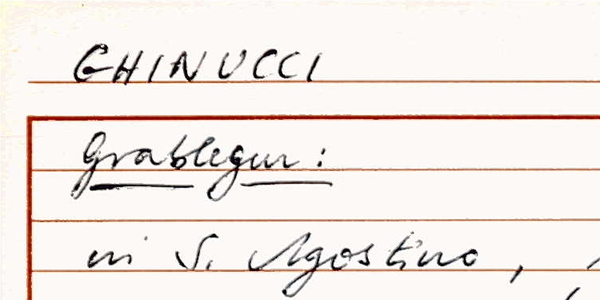 GHINUCCI
Grablegur:
in S. Agostino,